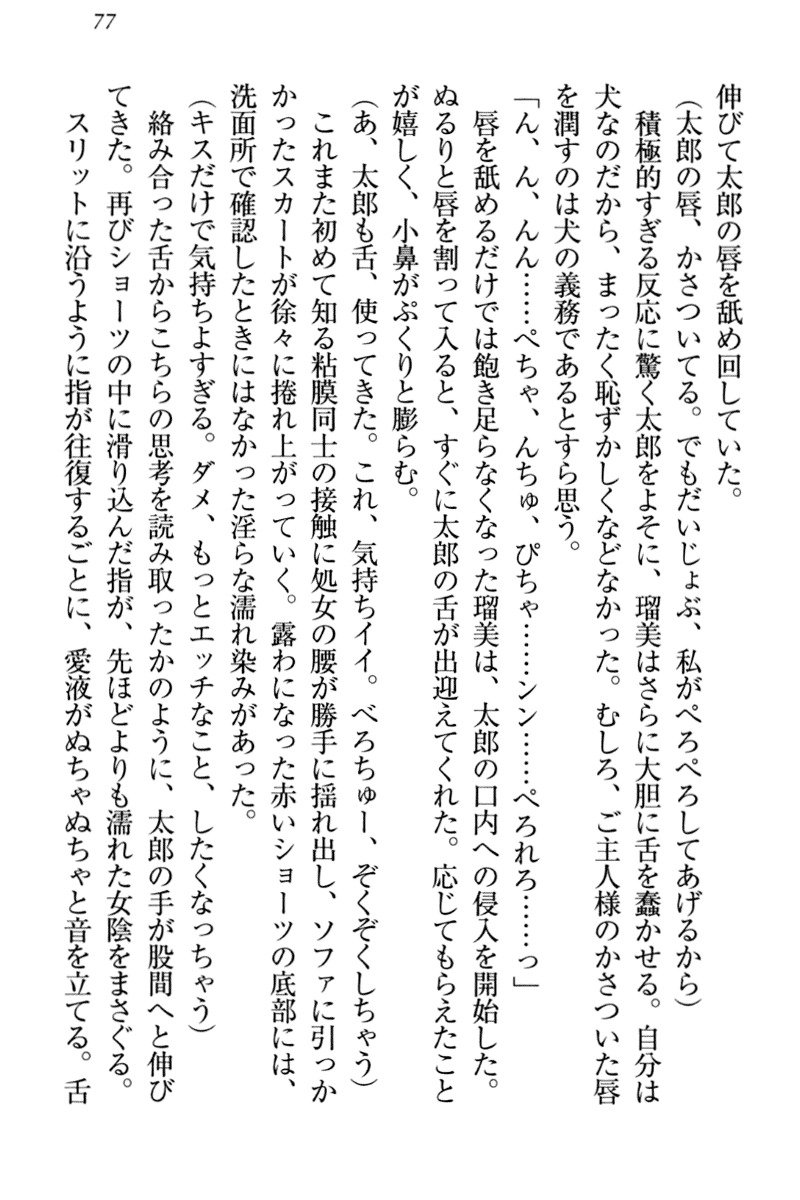 77
伸びて太郎の唇を舐め回していた。
(太郎の唇、かさついてる。でもだいじょぶ、私がぺろぺろしてあげるから)
積極的すぎる反応に驚く太郎をよそに、瑠美はさらに大胆に舌を蠢かせる。自分は
犬なのだから、まったく恥ずかしくなどなかった。むしろ、ご主人様のかさついた唇
を潤すのは犬の義務であるとすら思う。
「ん、ん、んん……ぺちゃ、んちゅ、ぴちゃ……ンン……ぺろれろ……っ」
唇を舐めるだけでは飽き足らなくなった瑠美は、太郎の口内への侵入を開始した。
ぬるりと唇を割って入ると、すぐに太郎の舌が出迎えてくれた。応じてもらえたこと
が嬉しく、小鼻がぷくりと膨らむ。
(あ、太郎も舌、使ってきた。これ、気持ちイイ。べろちゅー、ぞくぞくしちゃう)
これまた初めて知る粘膜同士の接触に処女の腰が勝手に揺れ出し、ソファに引っか
かったスカートが徐々に捲れ上がっていく。露わになった赤いショーツの底部には、
洗面所で確認したときにはなかった淫らな濡れ染みがあった。
(キスだけで気持ちよすぎる。ダメ、もっとエッチなこと、したくなっちゃう)
絡み合った舌からこちらの思考を読み取ったかのように、太郎の手が股間へと伸び
てきた。再びショーツの中に滑り込んだ指が、先ほどよりも濡れた女陰をまさぐる。
スリットに沿うように指が往復するごとに、愛液がぬちゃぬちゃと音を立てる。舌